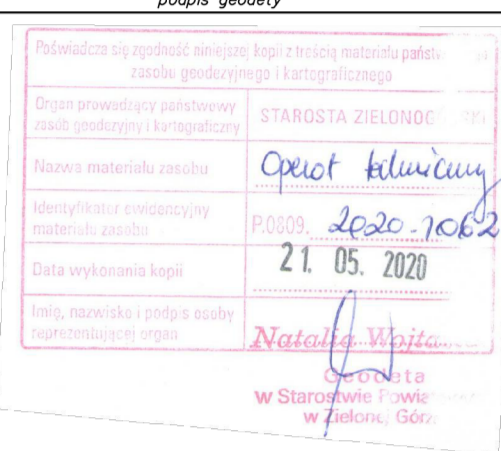 podpis geodety
Poświadcza się zgodność niniejszej kopii z treścią materiału państw
zasobu geodezyjnego i kartograficznego
Organ prowadzący państwowy
zasób geodezyjny i kartograficzny
STAROSTA ZIELONOG
Nazwa materiału zasobu
Operot techniczny
Identyfikator ewidencyjny
materiału zasobu
P.0809. 2020.1062
Data wykonania kopii
21. 05. 2020
Imię, nazwisko i podpis osoby
reprezentującej organ
Natalia Wojta
Geodeta
w Starostwie Powia
w Zielonej Górz